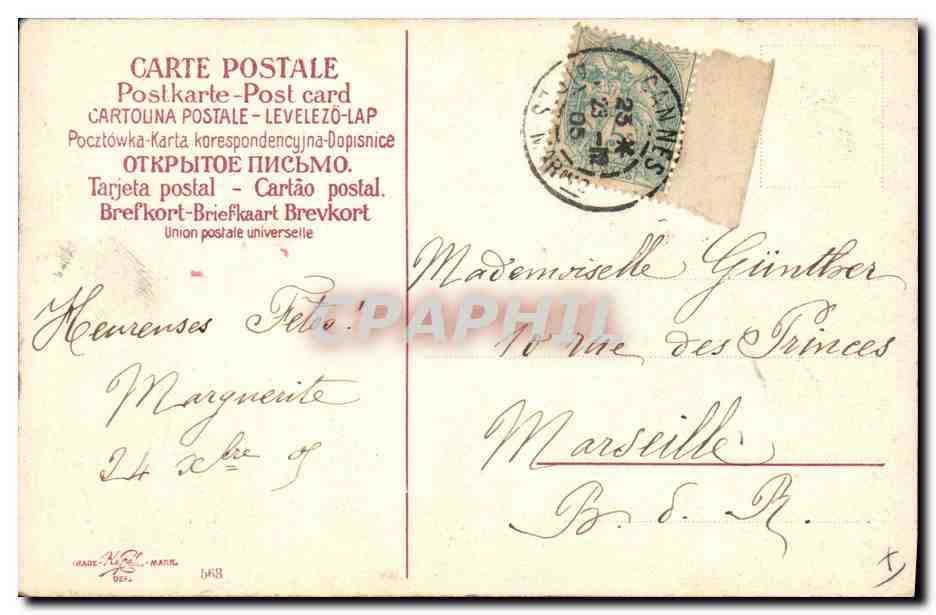 CARTE POSTALE
Postkarte-Post card
CARTOLINA POSTALE-LEVELEZÖ-LAP
Pocztówka-Karta korespondencyjna-Dopisnice
ОТКРЫТОЕ ПИСЬМО.
Tarjeta postal - Cartão postal.
Brefkort-Briefkaart Brevkort
Union postale universelle
CANNES
23 *
23 - 12
05
Mademoiselle Günther
10 rue des Princes
Marseille
B. d. R.
Heureuses Fêtes!
Marguerite
24 xbre 05
CPAPHIL
TRADE- -MARK.
DEP.
563